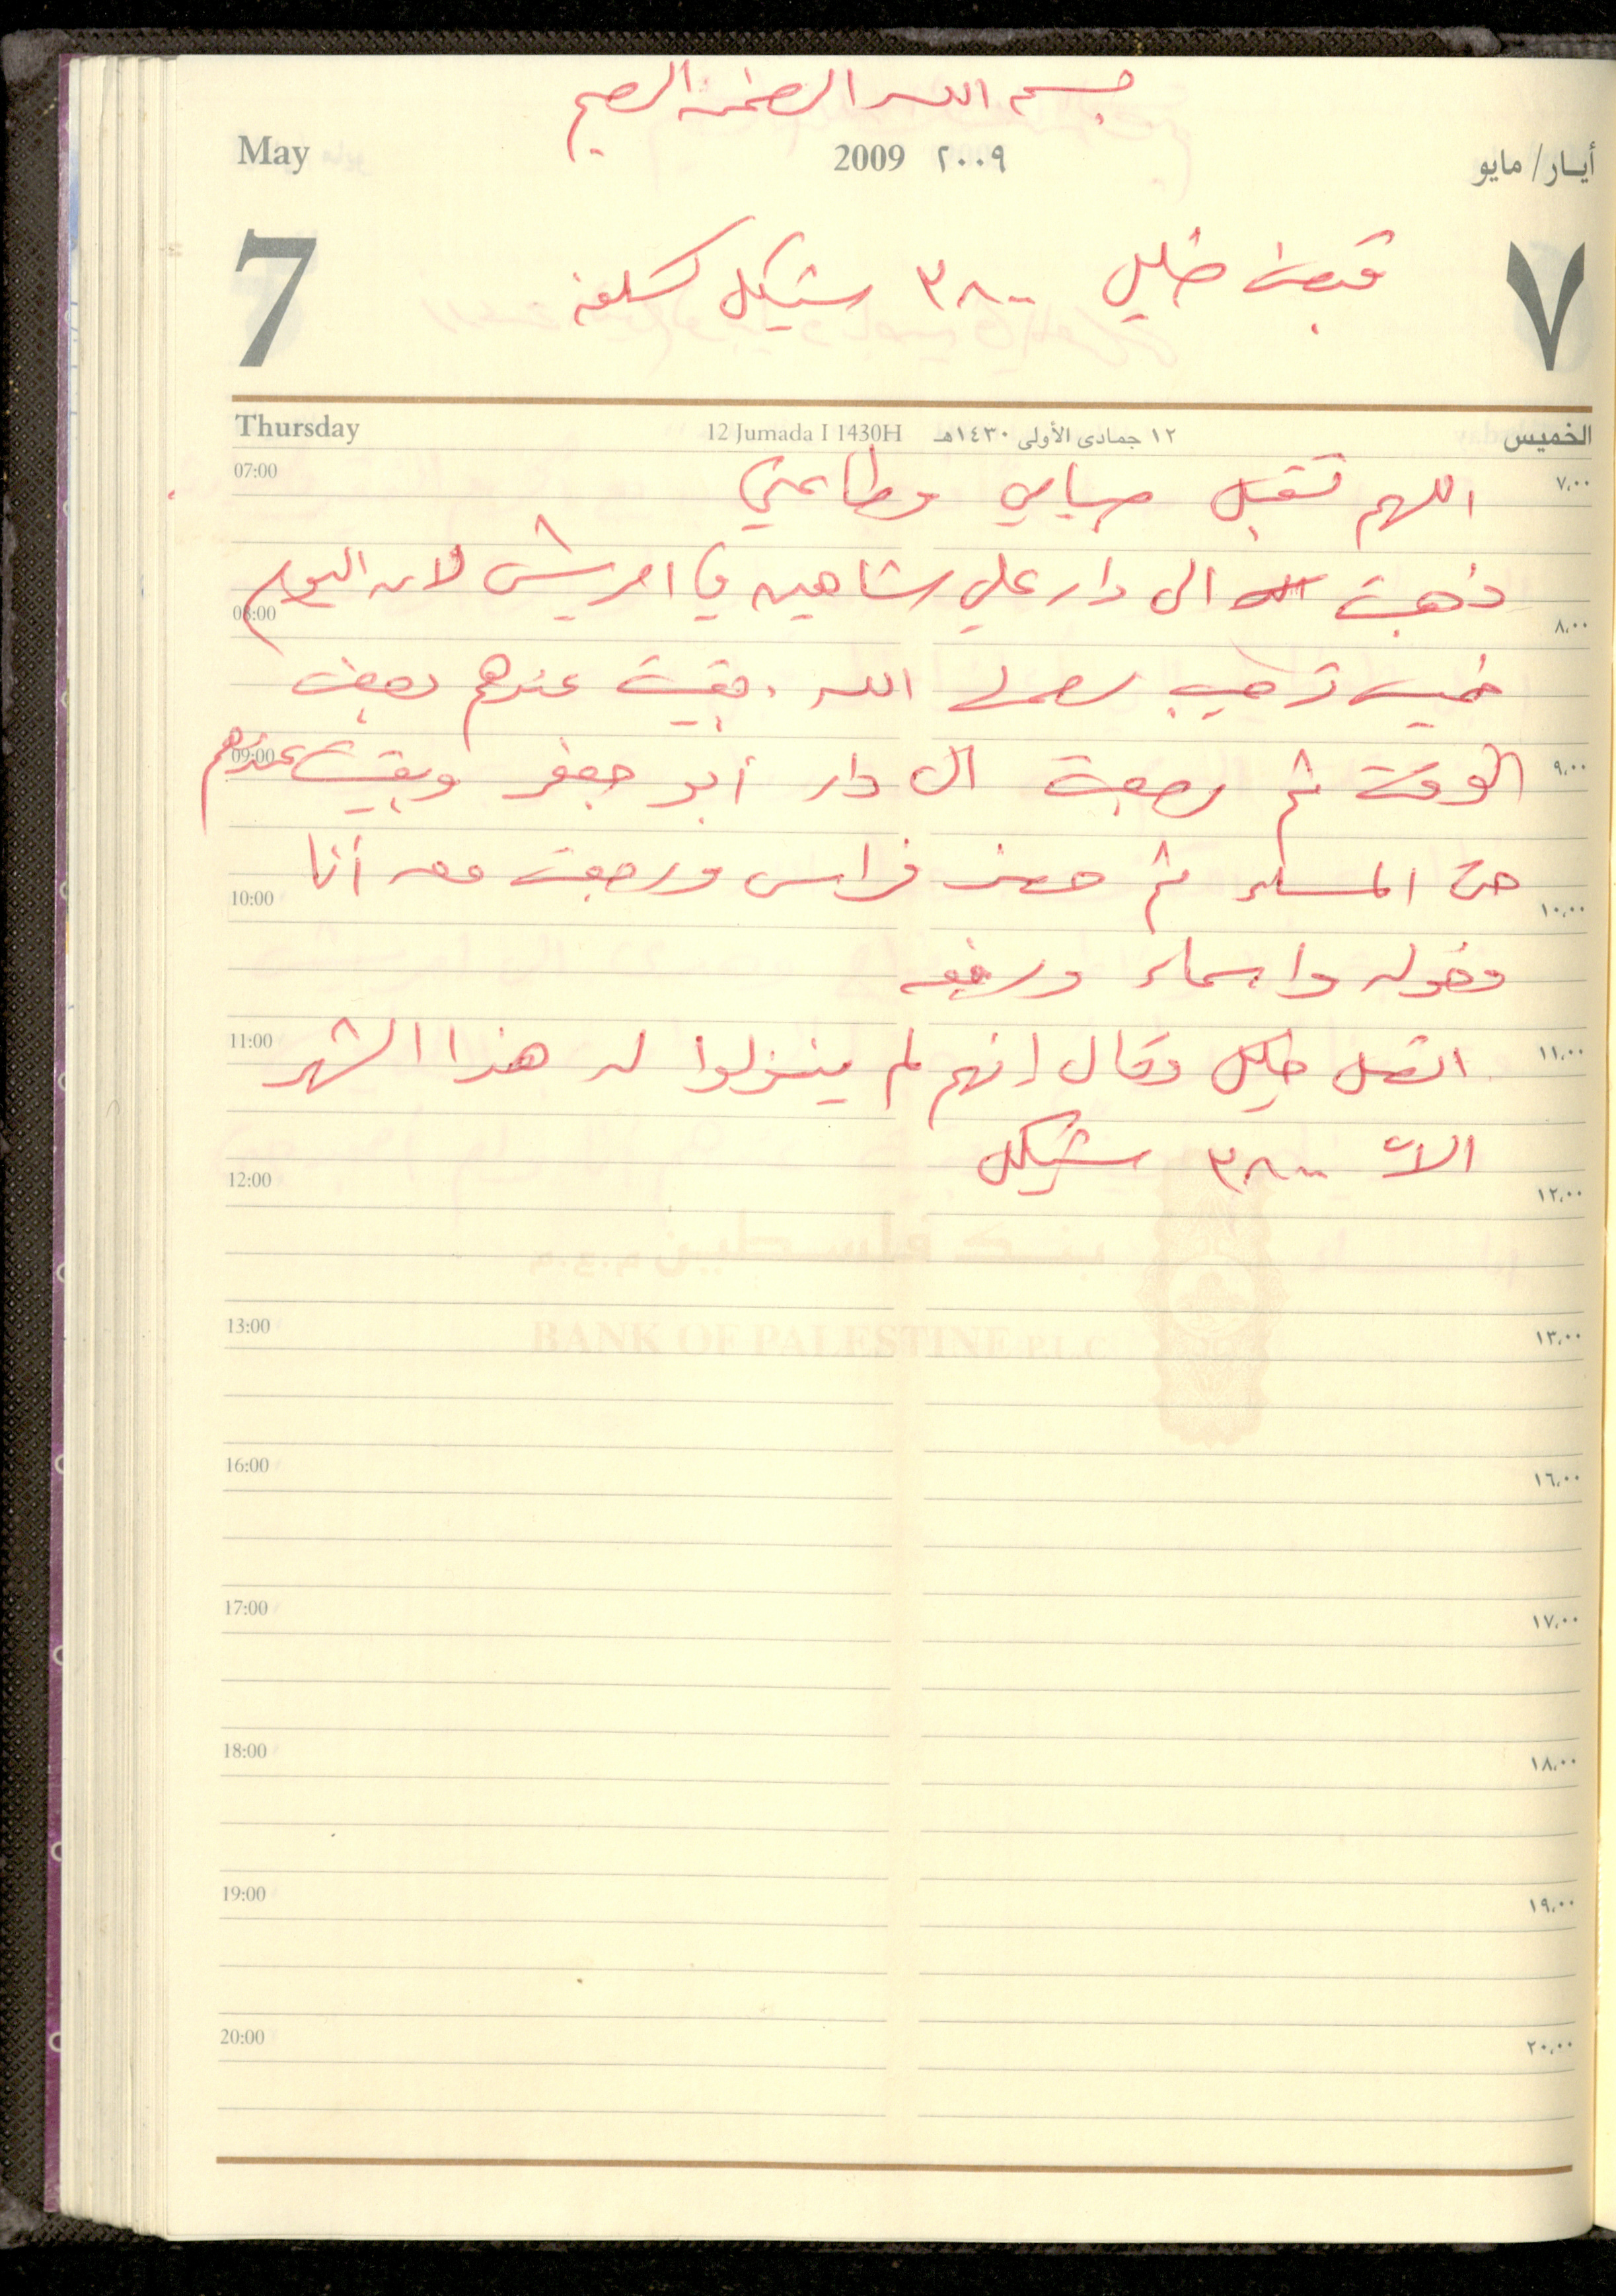 بسم الله الرحمن الرحيم
May 2009 ٢٠٠٩ أيـار/ مايو
7 قبض خليل ٣٨٠٠ شيكل كسلفة ٧
Thursday 12 Jumada I 1430H ١٢ جمادى الأولى ١٤٣٠هـ الخميس
07:00 اللهم تقبل صيامي وطاعتي ٧,٠٠
ذهبت الى دار علي شاهين في امريش لان اليوم
08:00 ٨,٠٠
خميس زهيب رحمها الله . بقيت عندهم بعض
09:00 الوقت ثم رجعت الى دار أبو جعفر وبقيت عندهم ٩,٠٠
10:00 حتى المساء ثم حضر فراس ورجعت معه أنا ١٠,٠٠
وخوله واسماء ورفيقه
11:00 اتصل خليل وقال انهم لم ينزلوا له هذا الشهر ١١,٠٠
الا ٣٨٠٠ شيكل
12:00 ١٢,٠٠
بنك فلسطين م.ع.م
13:00 BANK OF PALESTINE P.L.C ١٣,٠٠
16:00 ١٦,٠٠
17:00 ١٧,٠٠
18:00 ١٨,٠٠
19:00 ١٩,٠٠
20:00 ٢٠,٠٠